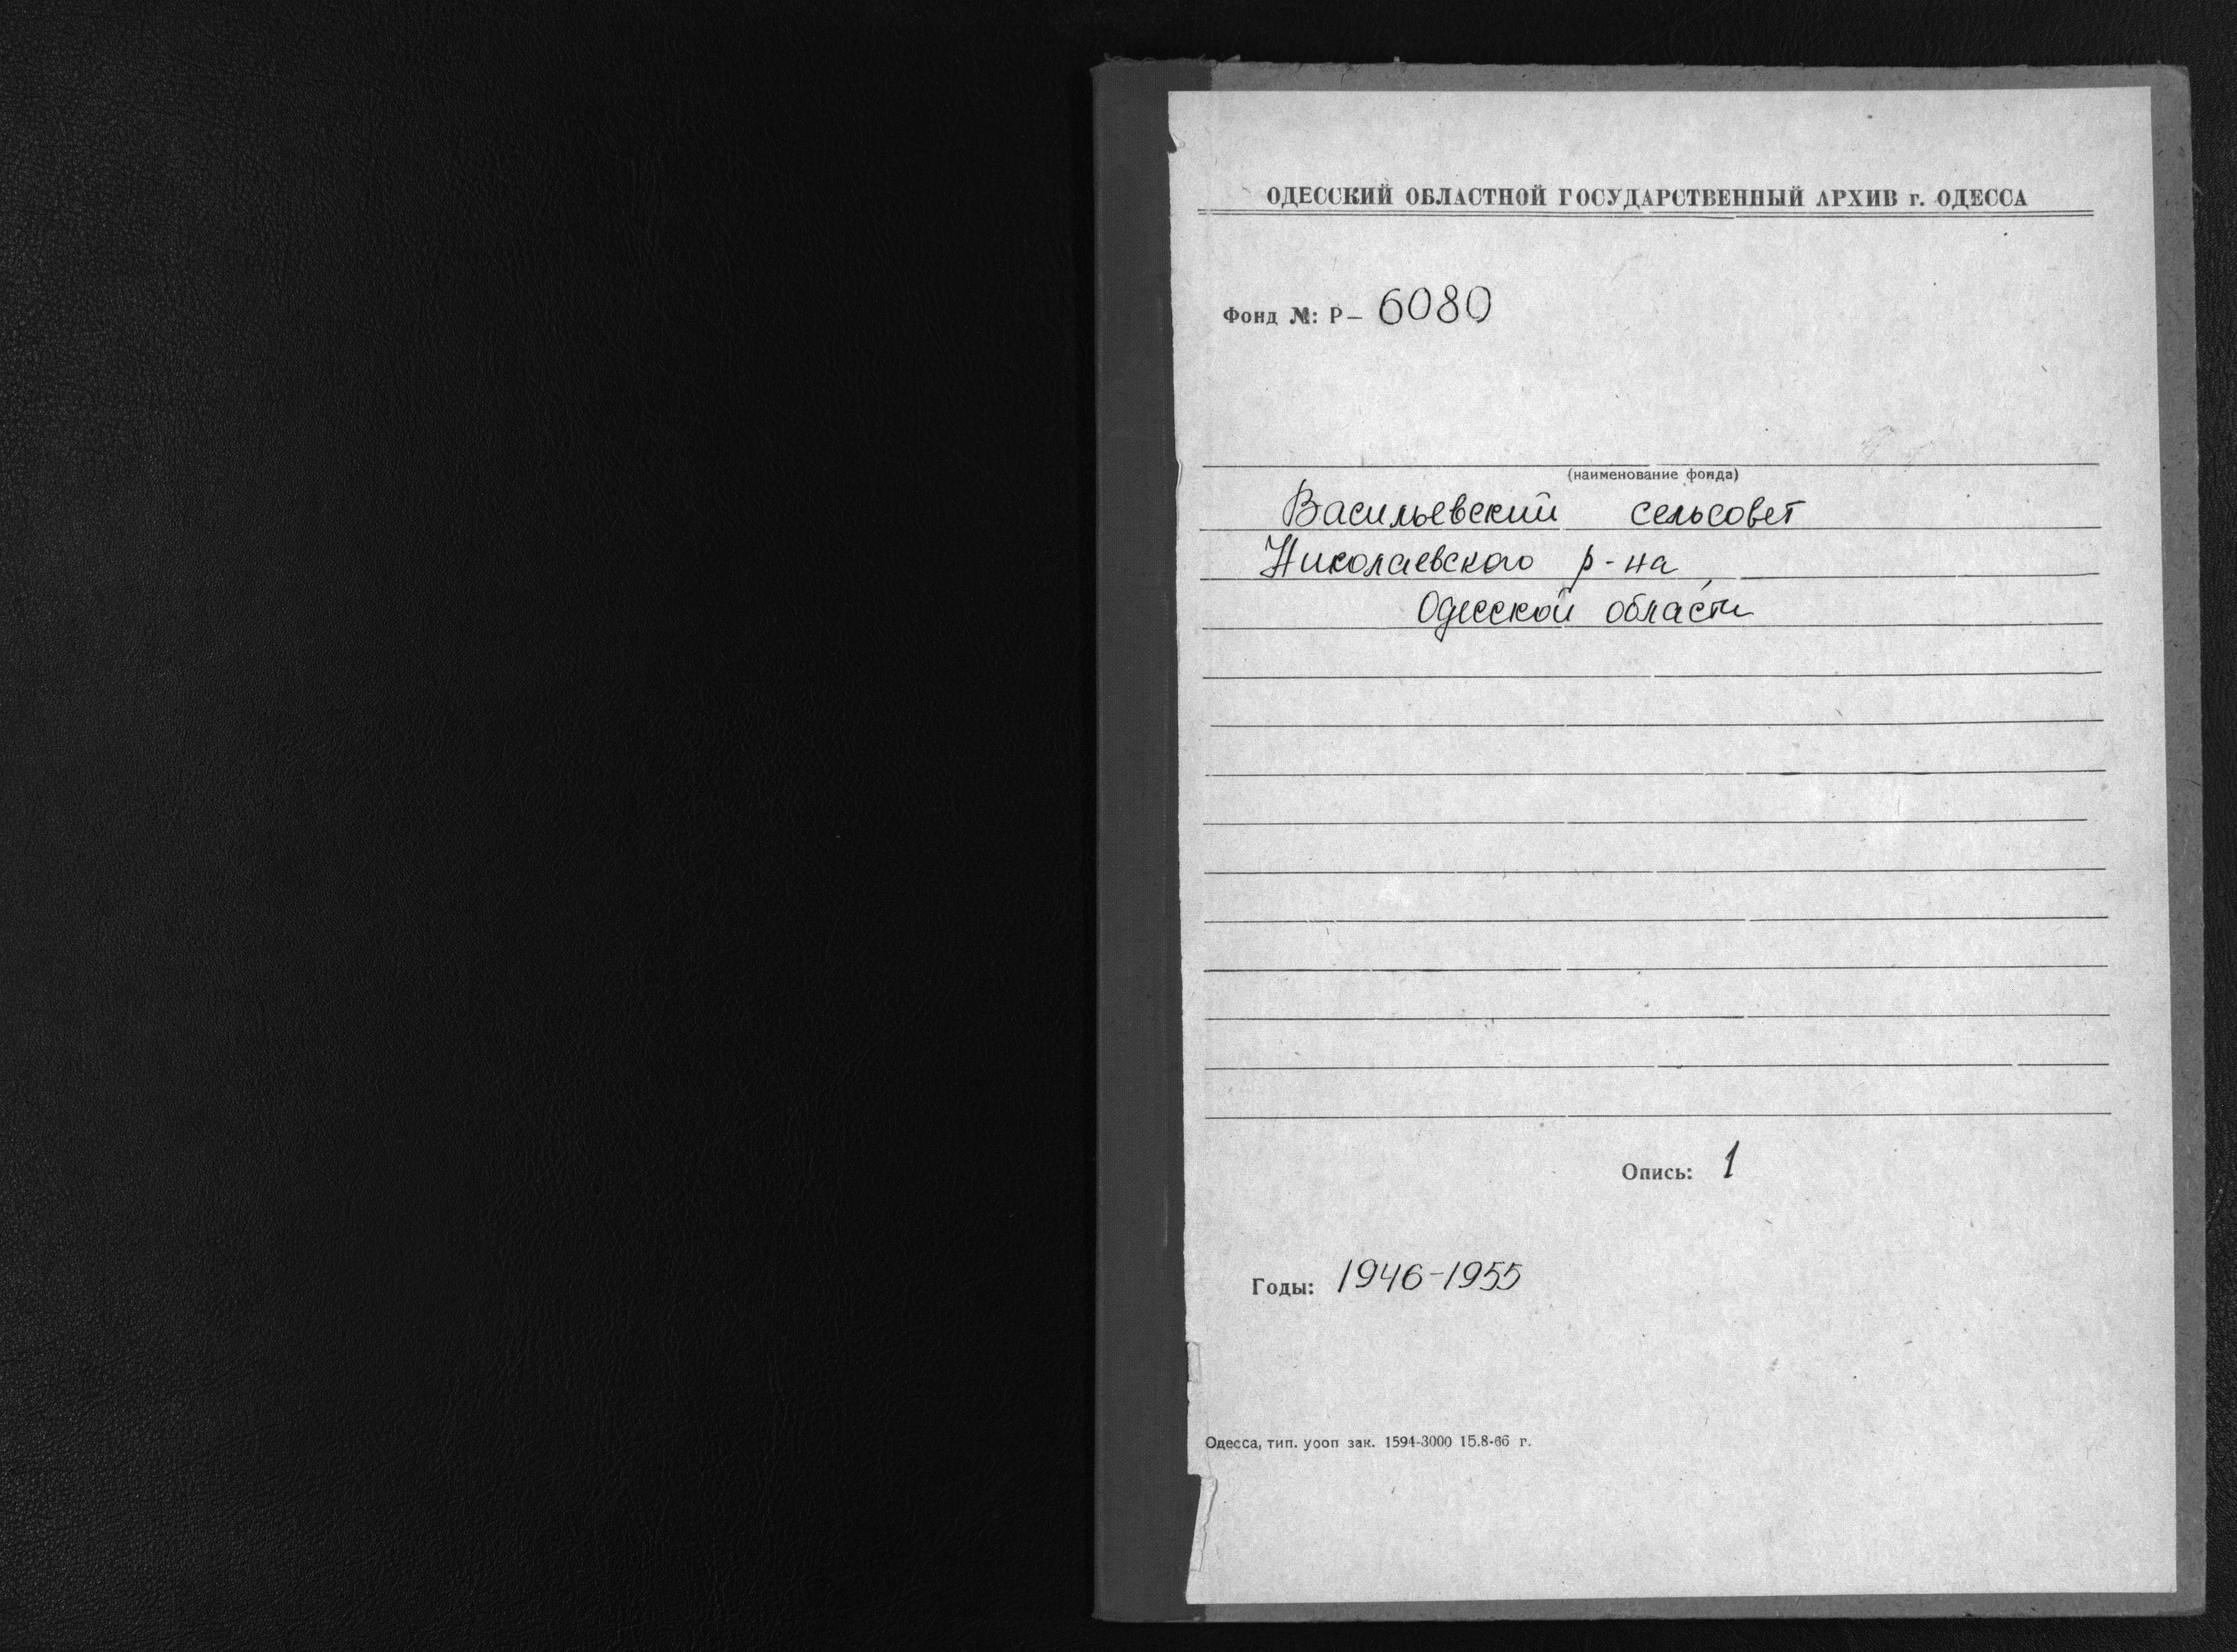 ОДЕССКИЙ ОБЛАСТНОЙ ГОСУДАРСТВЕННЫЙ АРХИВ г. ОДЕССА
Фонд №: Р— 6080
(наименование фонда)
Васильевский сельсовет
Николаевского р-на
Одесской области
Опись: 1
Годы: 1946-1955
Одесса, тип. уооп зак. 1594-3000 15.8-66 г.